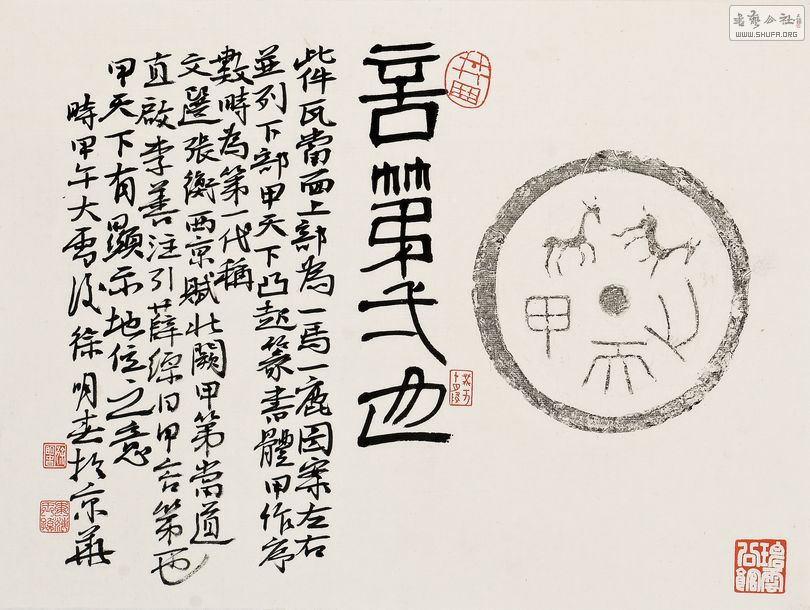 書藝公社
WWW.SHUFA.ORG
甲天下
言第弌也
此件瓦當面上部為一馬一鹿图案左右
並列下部甲天下凸起篆書體甲作序
數時為第一代稱
文選張衡西京賦北闕甲第當道
直啟李善注引薛綜曰甲言第一也
甲天下有顯示地位之意
時甲午大雪後徐明 於京華